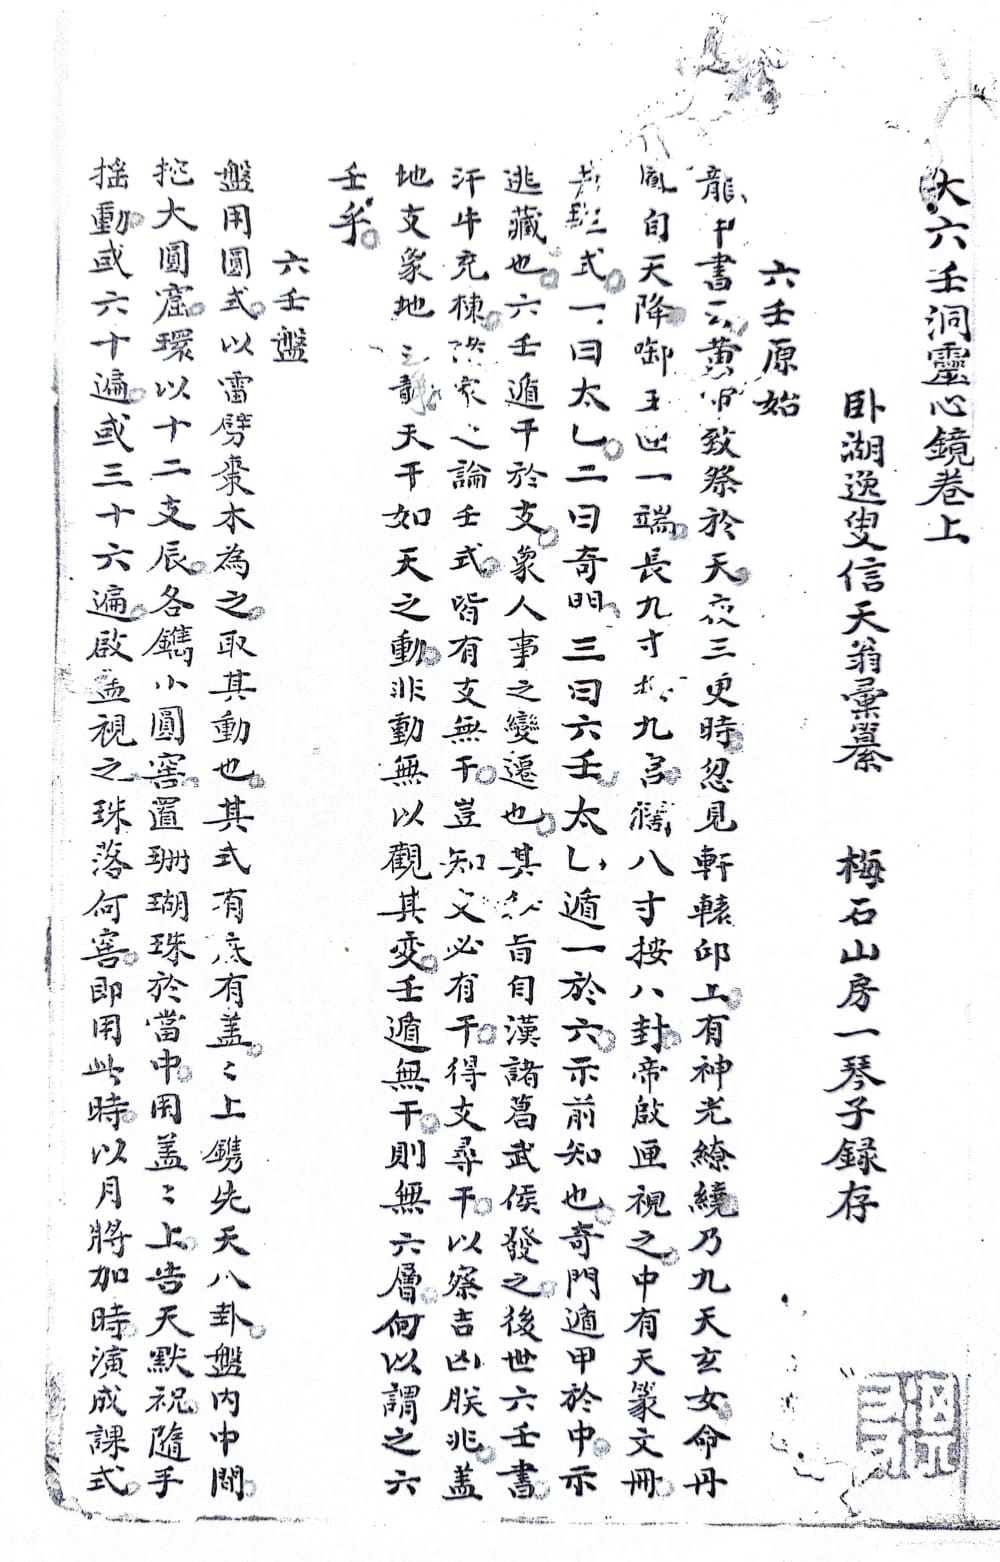 大六壬洞靈心鏡卷上
卧湖逸叟信天翁彙纂 梅石山房一琴子録存
六壬原始
龍甲書云黄帝致祭於天夜三更時忽見軒轅邱上有神光繚繞乃九天玄女命丹
鳳自天降啣玉 一端長九寸按九宮濶八寸按八卦帝啟匣視之中有天篆文冊
式一曰太乚二曰奇門三曰六壬太乚遁一於六示前知也奇門遁甲於中示
逃藏也六壬遁干於支象人事之變遷也其 旨自漢諸葛武侯發之後世六壬書
汗牛充棟 家之論壬式皆有支無干豈知文必有干得支尋干以察吉凶朕兆盖
地支象地之静天干如天之動非動無以觀其变壬遁無干則無六層何以謂之六
壬乎
六壬盤
盤用圓式以雷劈棗木為之取其動也其式有底有盖〻上鐫先天八卦盤内中間
挖大圓窟環以十二支辰各鐫小圓窖置珊瑚珠於當中用盖〻上告天默祝隨手
摇動或六十遍或三十六遍啟盖視之珠落何窖即用此時以月將加時演成課式